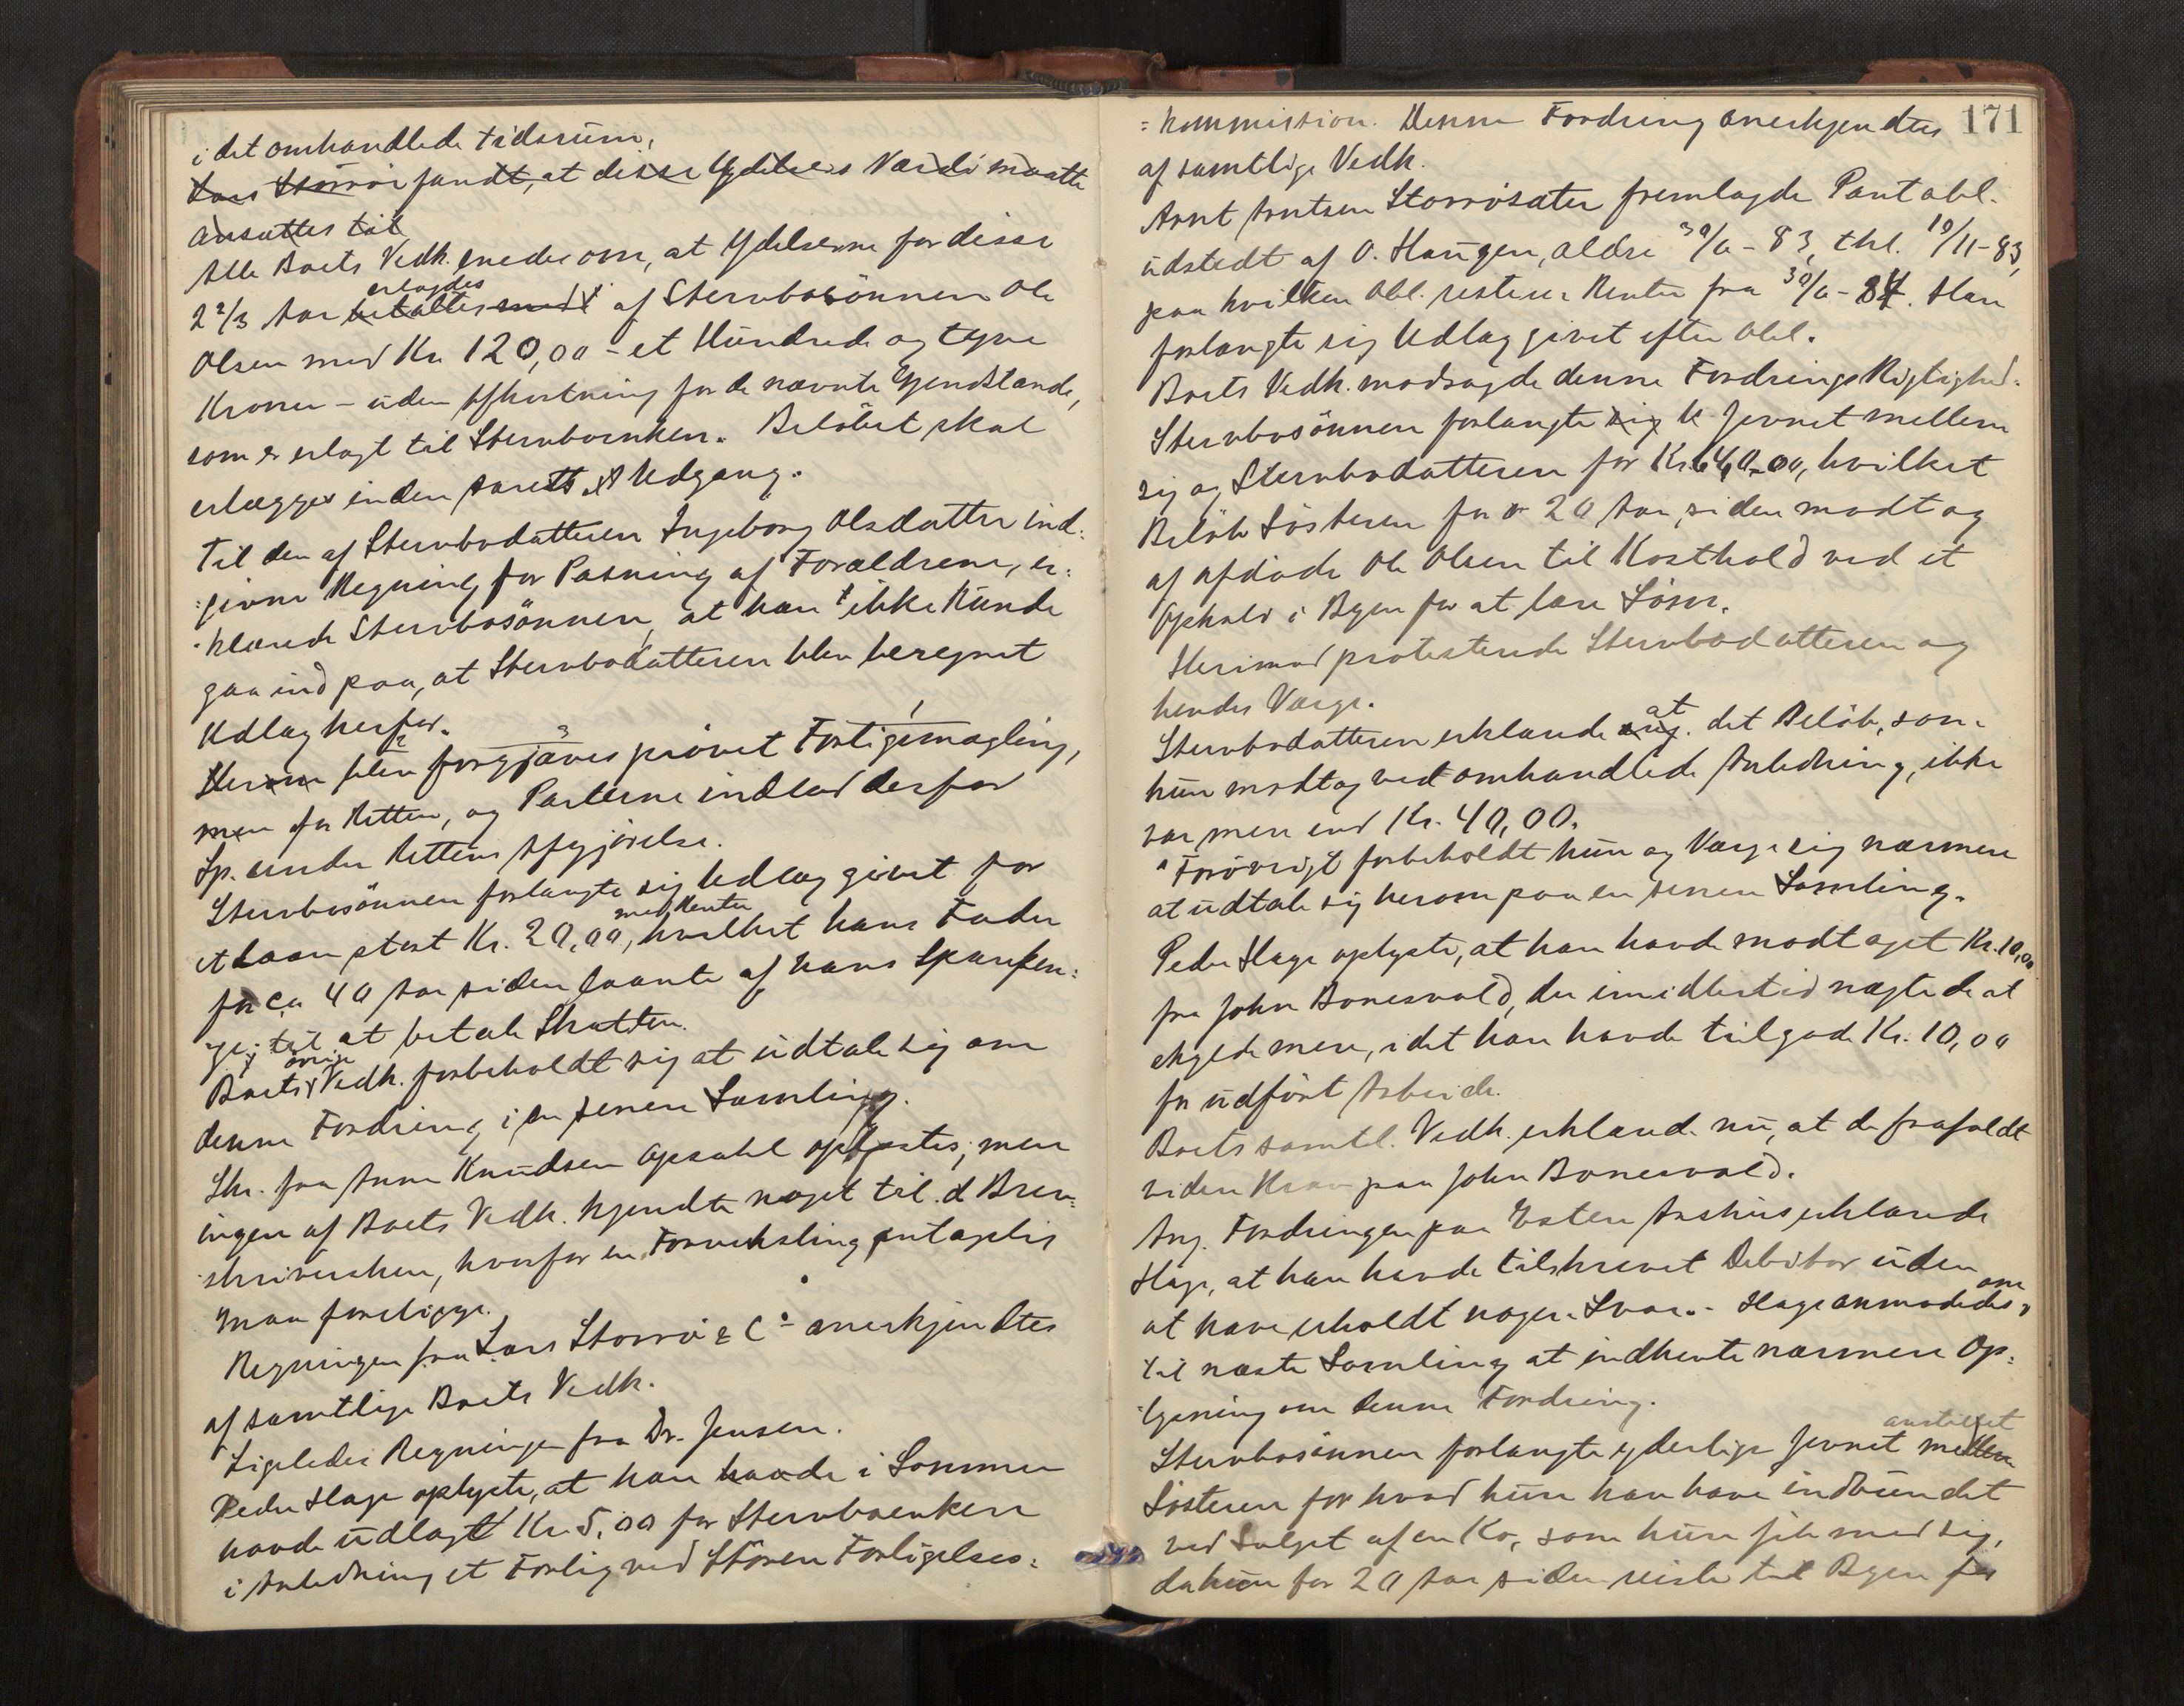 i det omhandlede tidsrum,
Lars Storröi fandt, at disse Ydelsers Værdi maatte
ansættes til
Alle Boets Vedk. enedes om, at Ydelserne for disse
2 2/3 Aar betaltes med erlagdes af Stervbosönnen Ole
Olsen med Kr. 120,00 – et Hundrede og tyve
Kroner – uden Afkortning for de nævnte Gjenstande,
som er erlagt til Stervboenken. Beløbet skal
erlægges inden Aarets Udgang.
Til den af Stervbodatteren Ingeborg Olsdatter ind-
givne Regning for Pasning af Forældrene, er-
klærede Stervbosönnen, at han ikke kunde
gaa ind paa, at Stervbodatteren blev beregnet
Udlæg herfor.
Herom blev forgjæves prövet Forligsmægling,
men for Retten, og Parterne indlod derfor
Sp. under Rettens Afgjörelse.
Stervbosönnen forlangte sig Udlæg givet for
et Laan stort Kr. 20,00, med Renter hvilket hans Fader
for ca 40 Aar siden laante af hans Sparepen-
ge, til at betale Skatten.
Boets övrige Vedk. forbeholdt sig at udtale sig om
denne Fordring i en senere Samling.
Skr. fra Anne Knudsen Opsahl oplæstes, men
ingen af Boets Vedk. kjendte noget til d Brev-
skriversken, hvorfor en Forveksling antagelig
maa foreligge.
Regningen fra Lars Storröi & Co anerkjendtes
af samtlige Boets Vedk.
Ligeledes Regningen fra Dr. Jensen.
Peder Hage oplyste, at han havde i Sommer
havde udlagt Kr. 5,00 for Stervboenken
i Anledning et Forlig ved Stören Forligelses-
171
-kommission. Denne Fordring anerkjendtes
af samtlige Vedk.
Arnt Arntsen Storrösæter fremlagde Pantobl.
udstedt af O. Haugen, ældre 30/6 - 83, thl. 10/11 - 83,
paa hvilken Obl. resterer Renter fra 30/6 - 84. Han
forlangte sig Udlæg givet efter Obl.
Boets Vedk. modsagde denne Fordrings Rigtighed.
Stervbosönnen forlangte sig U Jevnet mellem
sig og Stervbodatteren for Kr. 640,00, hvilket
Beløb Sösteren for 20 Aar siden modtog
af afdöde Ole Olsen til Kosthold ved et
Ophold i Byen for at lære Söm.
Herimod protesterede Stervbodatteren og
hendes Værge.
Stervbodatteren erklærede at det Beløb, som
hun modtog ved omhandlede Anledning, ikke
var mere end Kr. 40,00.
Forövrigt forbeholdt hun og Værge sig nærmere
at udtale sig herom paa en senere Samling.
Peder Hage oplyste, at han havde modtaget Kr. 10,00
fra John Bonesvold, der imidlertid nægtede at
skylde mere, idet han havde tilgode Kr. 10,00
for udfört Arbeide.
Boets samtl. Vedk. erklærede nu, at de frafaldt
videre Krav paa John Bonesvold.
Ang. Fordringen paa Esten Aashus erklærede
Hage, at han havde tilskrevet Debitor uden
at have erholdt noget Svar. – Hage anmodedes om
til næste Samling at indhente nærmere Op-
lysning om denne Fordring.
Stervbosönnen forlangte yderlige Jevnet mellem anstillet
Sösteren for hvad hun kan have indvundet
ved Salget af en Ko, som hun fik med sig,
da hun for 20 Aar siden reiste til Byen for